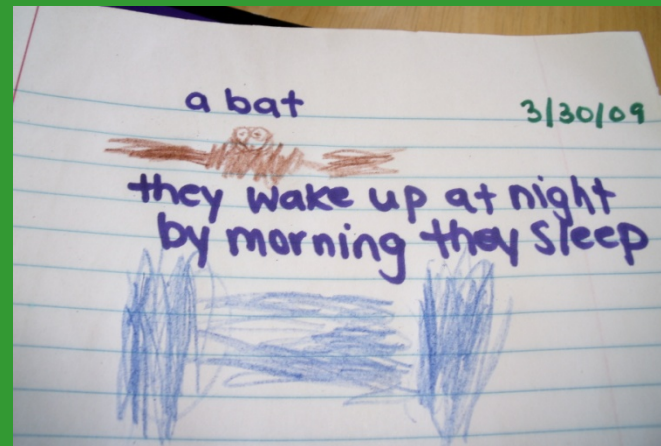 a bat
3/30/09
they wake up at night
by morning they sleep